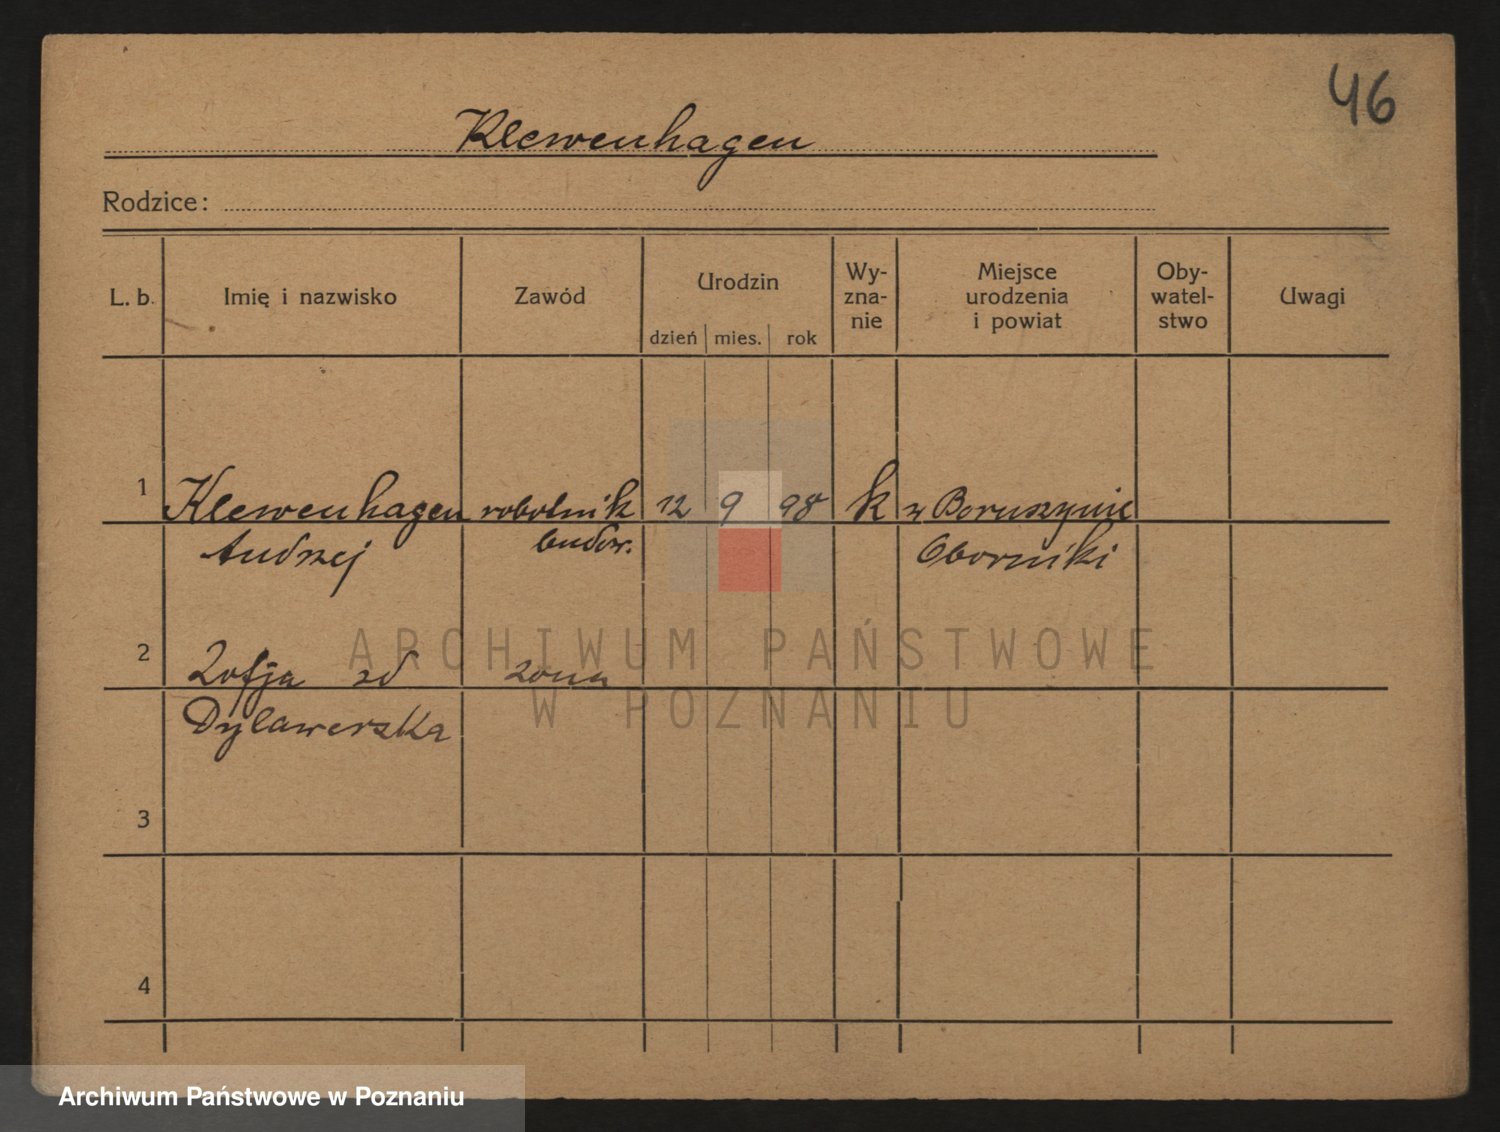 46
Klewenhagen
Rodzice:
L. b. Imię i nazwisko Zawód Urodzin dzień mies. rok Wy-zna-nie Miejsce urodzenia i powiat Oby-watel-stwo Uwagi
1 Klewenhagen robotnik 12 9 98 k w Boruszynie
Andrzej budow. Oborniki
2 Zofja zd żona
Dylawerska
3
4
ARCHIWUM PAŃSTWOWE
W POZNANIU
Archiwum Państwowe w Poznaniu